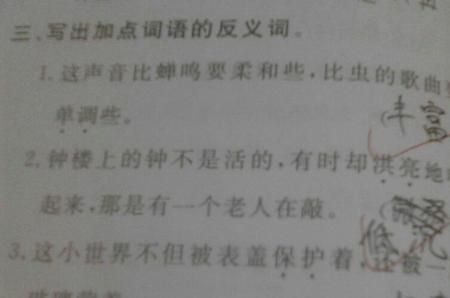 三、写出加点词语的反义词。
1.这声音比蝉鸣要柔和些,比虫的歌曲
单调些。
(丰富
2.钟楼上的钟不是活的,有时却洪亮地
起来,那是有一个老人在敲。
(低沉
3.这小世界不但被表盖保护着,还被一